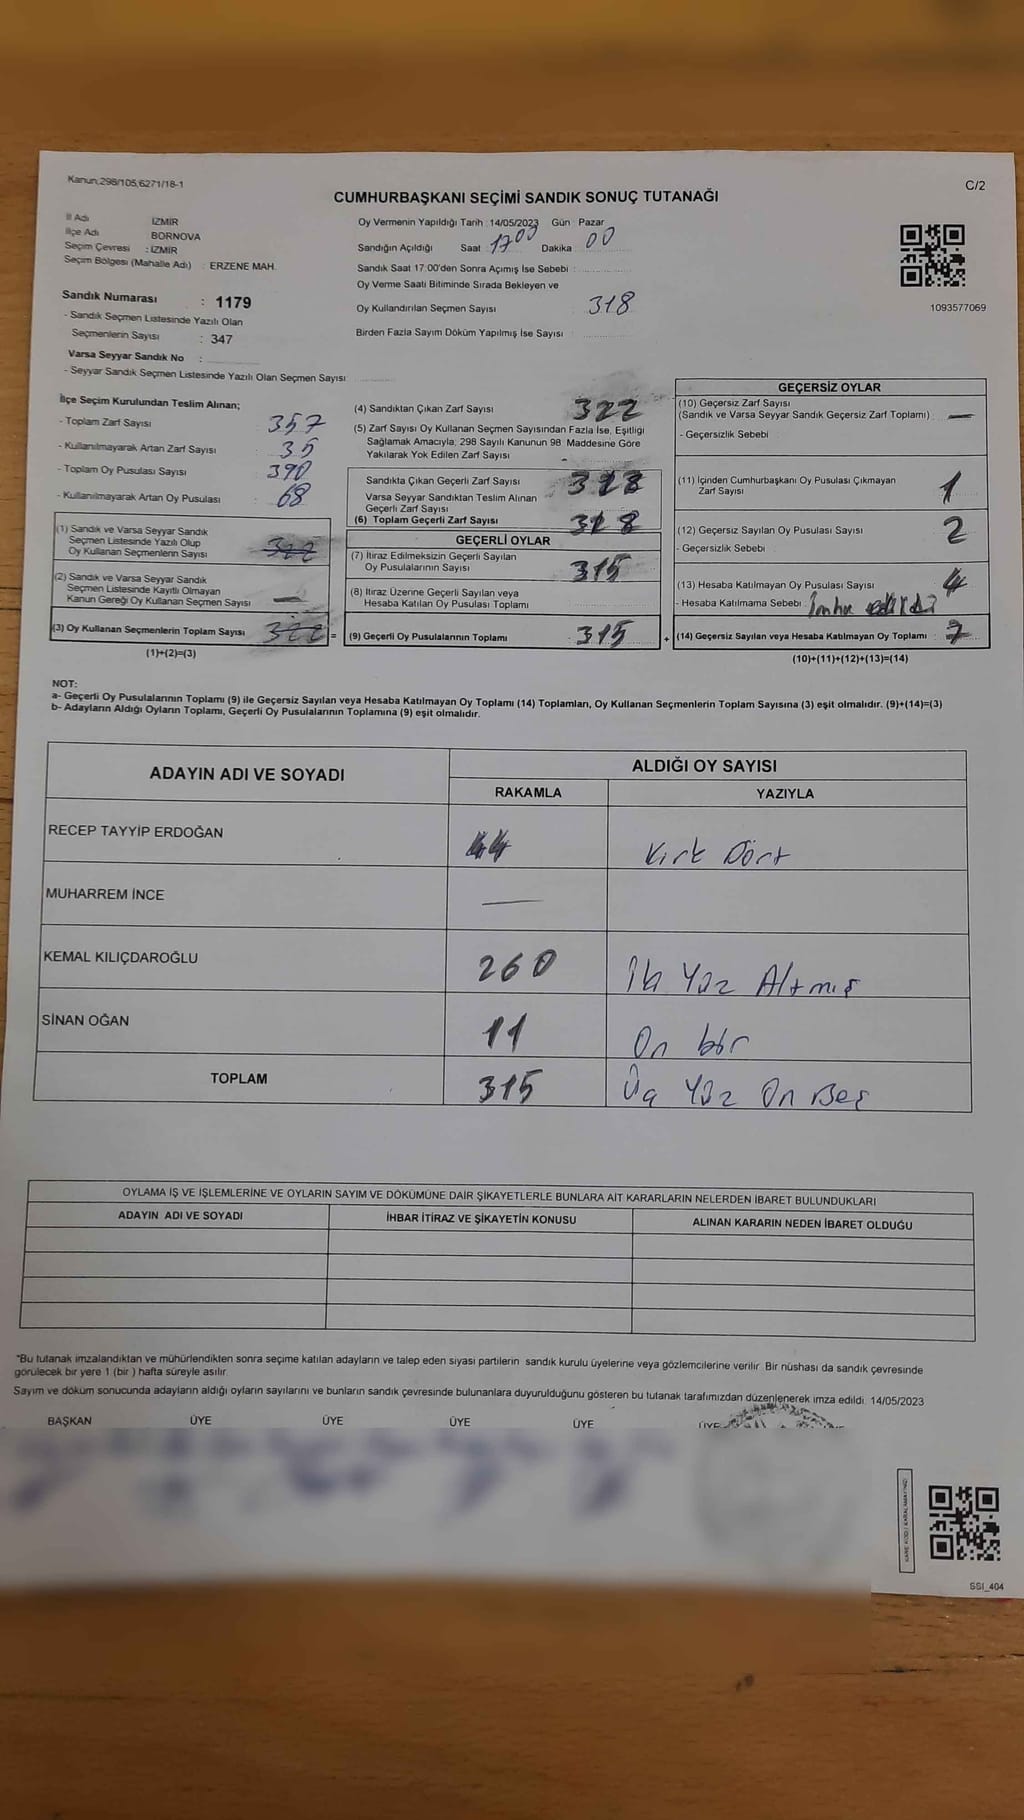 Kanun;298/105;6271/18-1
C/2
CUMHURBAŞKANI SEÇİMİ SANDIK SONUÇ TUTANAĞI
İl Adı İZMİR
İlçe Adı BORNOVA
Seçim Çevresi : İZMİR
Seçim Bölgesi (Mahalle Adı) : ERZENE MAH.
Sandık Numarası : 1179
- Sandık Seçmen Listesinde Yazılı Olan
Seçmenlerin Sayısı : 347
Varsa Seyyar Sandık No :
- Seyyar Sandık Seçmen Listesinde Yazılı Olan Seçmen Sayısı
Oy Vermenin Yapıldığı Tarih : 14/05/2023 Gün : Pazar
Sandığın Açıldığı Saat : 1700 Dakika : 00
Sandık Saat 17:00'den Sonra Açımış İse Sebebi :
Oy Verme Saati Bitiminde Sırada Bekleyen ve
Oy Kullandırılan Seçmen Sayısı 318
Birden Fazla Sayım Döküm Yapılmış İse Sayısı
1093577069
İlçe Seçim Kurulundan Teslim Alınan;
- Toplam Zarf Sayısı 357
- Kullanılmayarak Artan Zarf Sayısı 35
- Toplam Oy Pusulası Sayısı 390
- Kullanılmayarak Artan Oy Pusulası 68
(1) Sandık ve Varsa Seyyar Sandık
Seçmen Listesinde Yazılı Olup
Oy Kullanan Seçmenlerin Sayısı 322
(2) Sandık ve Varsa Seyyar Sandık
Seçmen Listesinde Kayıtlı Olmayan
Kanun Gereği Oy Kullanan Seçmen Sayısı —
(3) Oy Kullanan Seçmenlerin Toplam Sayısı 322 =
(1)+(2)=(3)
(4) Sandıktan Çıkan Zarf Sayısı 322
(5) Zarf Sayısı Oy Kullanan Seçmen Sayısından Fazla İse, Eşitliği
Sağlamak Amacıyla; 298 Sayılı Kanunun 98. Maddesine Göre
Yakılarak Yok Edilen Zarf Sayısı
Sandıkta Çıkan Geçerli Zarf Sayısı
Varsa Seyyar Sandıktan Teslim Alınan
Geçerli Zarf Sayısı
(6) Toplam Geçerli Zarf Sayısı
GEÇERLİ OYLAR
(7) İtiraz Edilmeksizin Geçerli Sayılan
Oy Pusulalarının Sayısı 315
(8) İtiraz Üzerine Geçerli Sayılan veya
Hesaba Katılan Oy Pusulası Toplamı
(9) Geçerli Oy Pusulalarının Toplamı 315 +
GEÇERSİZ OYLAR
(10) Geçersiz Zarf Sayısı
(Sandık ve Varsa Seyyar Sandık Geçersiz Zarf Toplamı) : —
- Geçersizlik Sebebi
(11) İçinden Cumhurbaşkanı Oy Pusulası Çıkmayan
Zarf Sayısı 1
(12) Geçersiz Sayılan Oy Pusulası Sayısı 2
- Geçersizlik Sebebi
(13) Hesaba Katılmayan Oy Pusulası Sayısı 4
- Hesaba Katılmama Sebebi : İmha edildi
(14) Geçersiz Sayılan veya Hesaba Katılmayan Oy Toplamı : 7
(10)+(11)+(12)+(13)=(14)
NOT:
a- Geçerli Oy Pusulalarının Toplamı (9) ile Geçersiz Sayılan veya Hesaba Katılmayan Oy Toplamı (14) Toplamları, Oy Kullanan Seçmenlerin Toplam Sayısına (3) eşit olmalıdır. (9)+(14)=(3)
b- Adayların Aldığı Oyların Toplamı, Geçerli Oy Pusulalarının Toplamına (9) eşit olmalıdır.
ADAYIN ADI VE SOYADI ALDIĞI OY SAYISI
RAKAMLA YAZIYLA
RECEP TAYYİP ERDOĞAN 44 Kırk Dört
MUHARREM İNCE —
KEMAL KILIÇDAROĞLU 260 İki Yüz Altmış
SİNAN OĞAN 11 On bir
TOPLAM 315 Üç Yüz On Beş
OYLAMA İŞ VE İŞLEMLERİNE VE OYLARIN SAYIM VE DÖKÜMÜNE DAİR ŞİKAYETLERLE BUNLARA AİT KARARLARIN NELERDEN İBARET BULUNDUKLARI
ADAYIN ADI VE SOYADI İHBAR İTİRAZ VE ŞİKAYETİN KONUSU ALINAN KARARIN NEDEN İBARET OLDUĞU
*Bu tutanak imzalandıktan ve mühürlendikten sonra seçime katılan adayların ve talep eden siyasi partilerin sandık kurulu üyelerine veya gözlemcilerine verilir. Bir nüshası da sandık çevresinde
görülecek bir yere 1 (bir ) hafta süreyle asılır.
Sayım ve döküm sonucunda adayların aldığı oyların sayılarını ve bunların sandık çevresinde bulunanlara duyurulduğunu gösteren bu tutanak tarafımızdan düzenlenerek imza edildi. 14/05/2023
BAŞKAN ÜYE ÜYE ÜYE ÜYE ÜYE
SSI_404